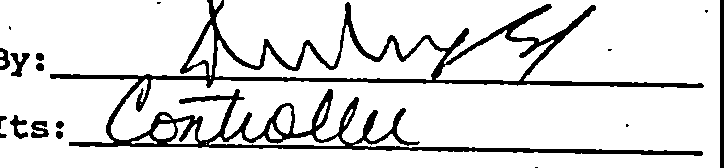 By:
Its: Controller